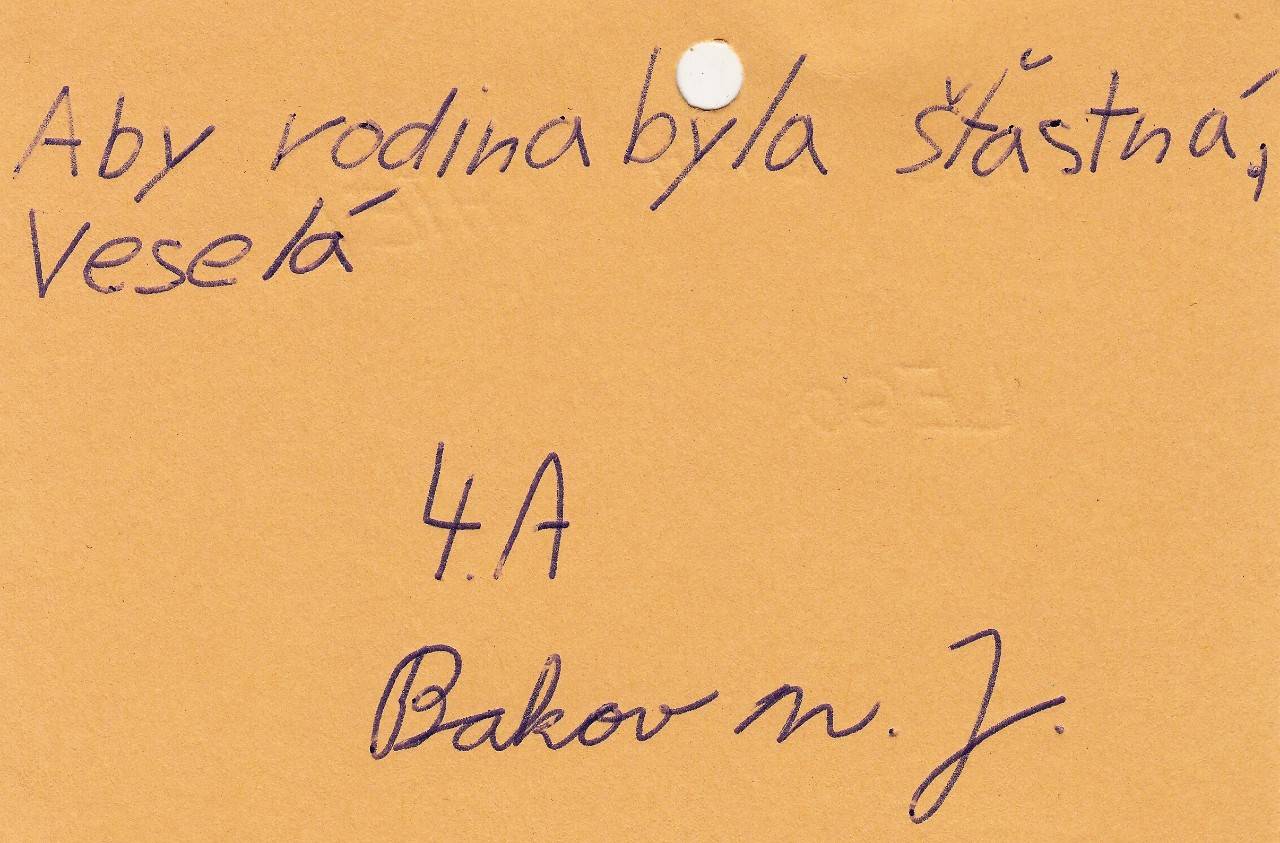 Aby rodina byla šťastná,
Veselá
4.A
Bakov n. J.